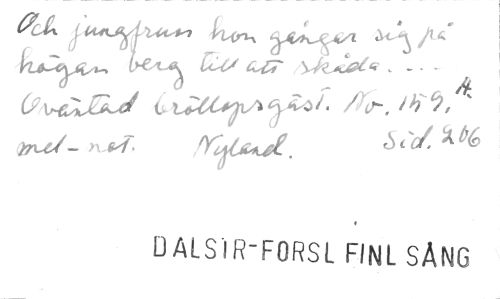 Och jungfrun hon gångar sig på
högan berg till att skåda....
Oväntad bröllopsgäst. No. 159, A.
mel-not. Nyland. Sid. 206
DALSIR-FORSL FINL SÅNG